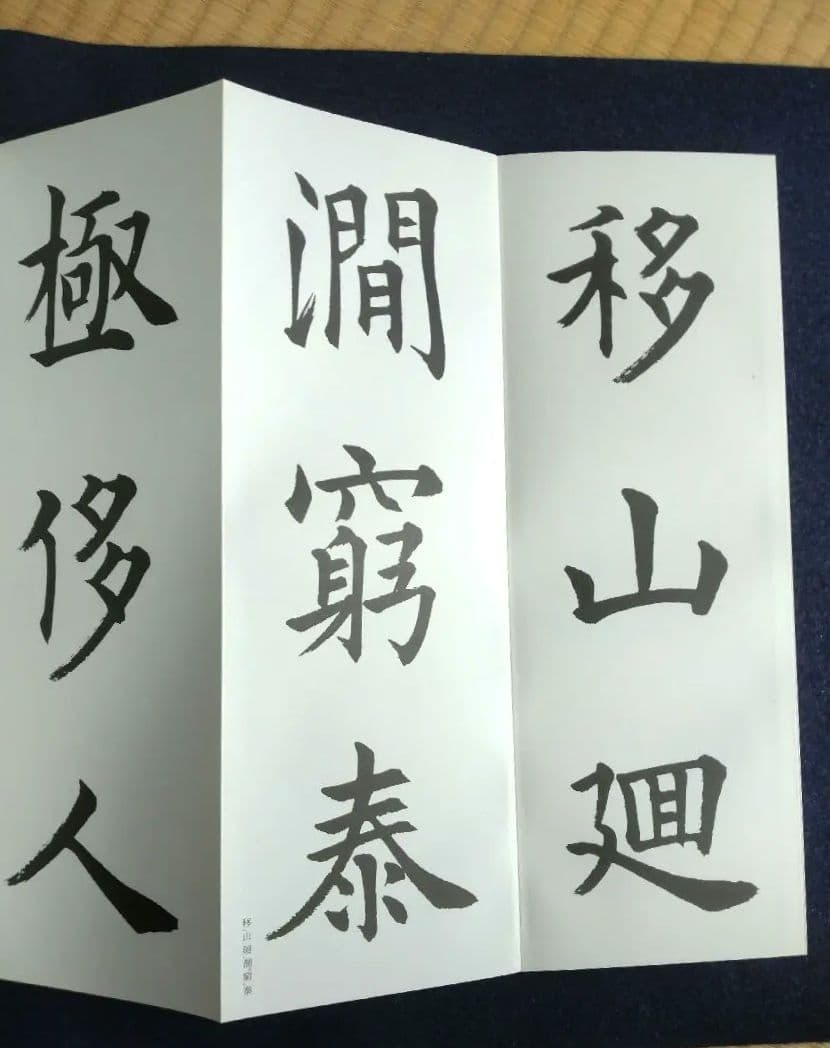 移山廻
澗窮泰
極侈人
移、山、廻、澗、窮、泰